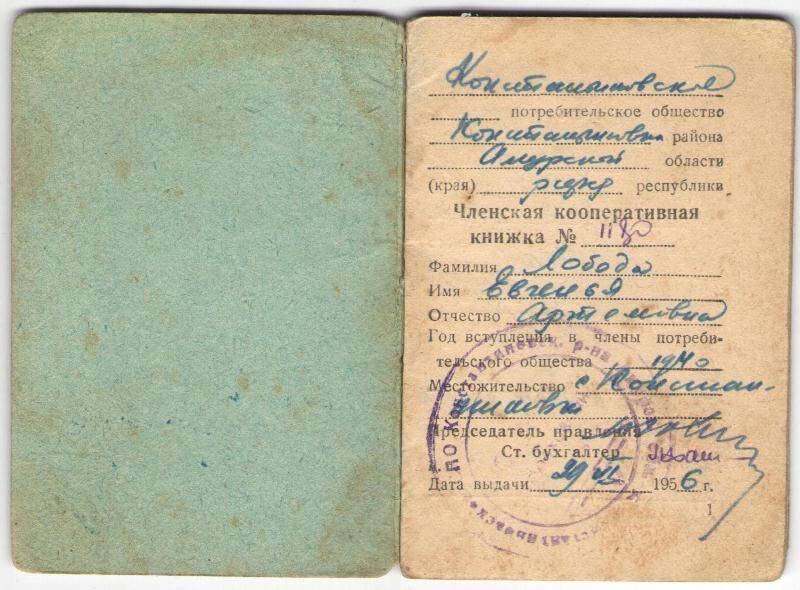 Константиновское
потребительское общество
района
Амурской области
(край) РСФСР республики
Членская кооперативная
книжка № 1180
Фамилия Лобода
Имя Евгенья
Отчество Артемовна
Год вступления в члены потреби-
тельского общества 1940
Местожительство с Констан-
тиновка
Председатель правления
Ст. бухгалтер
Дата выдачи 29 1956 г.
1